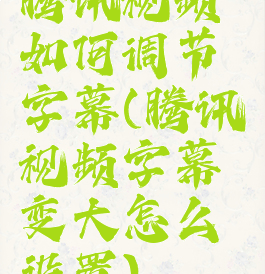 腾讯视频
如何调节
字幕(腾讯
视频字幕
变大怎么
设置)